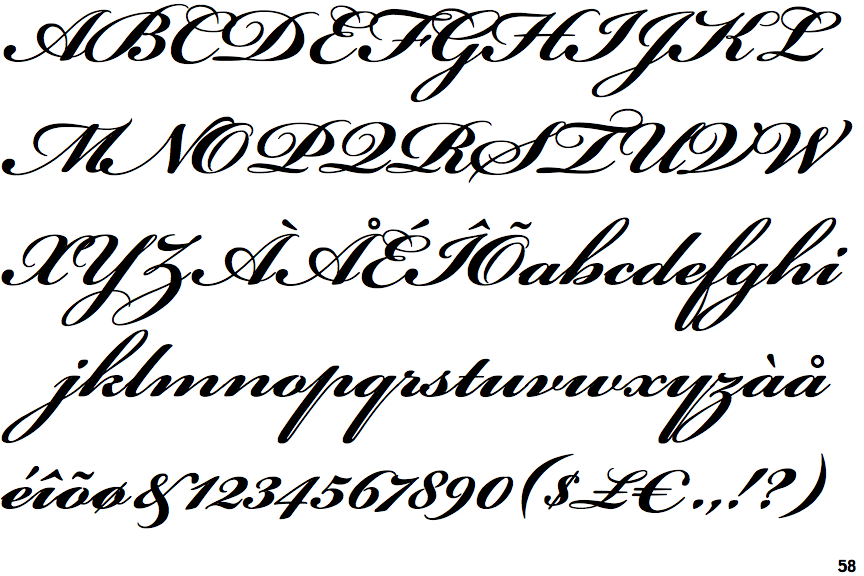 ABCDEFGHIJKL
MNOPQRSTUVW
XYZÀÅÉÎÕabcdefghi
jklmnopqrstuvwxyzàå
éîõø&1234567890($£€.,!?)
58